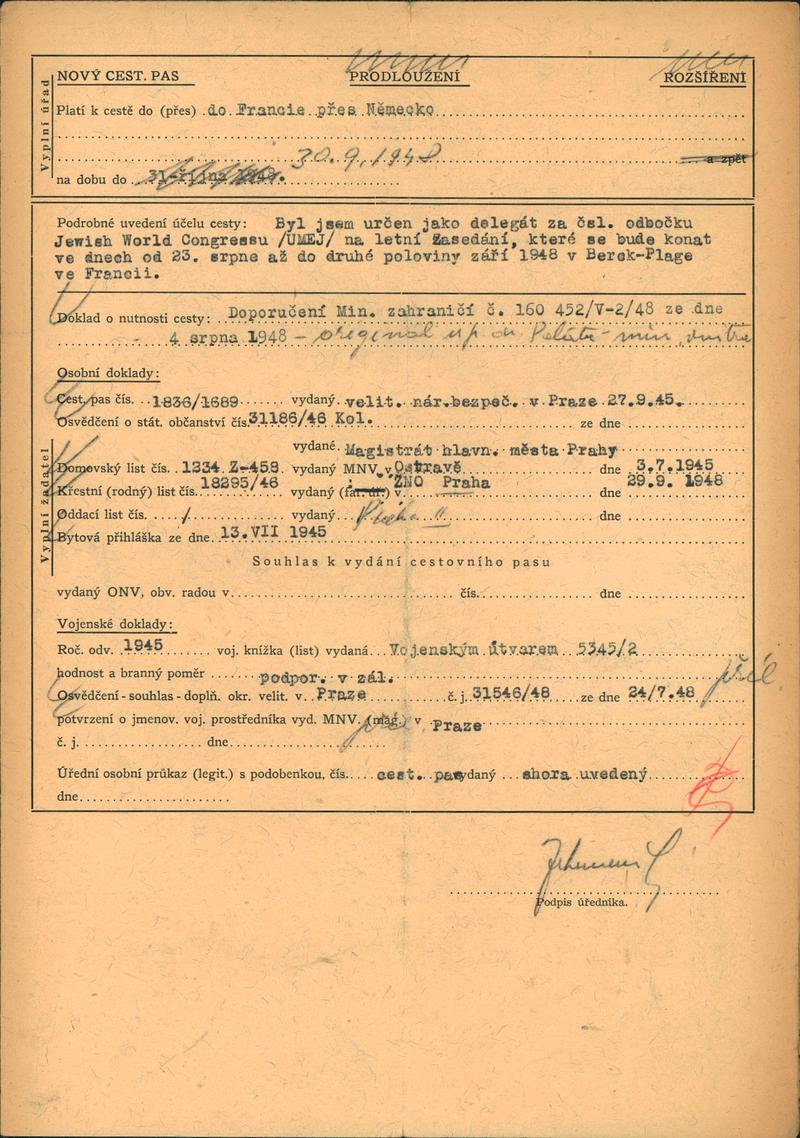 Vyplní úřad
NOVÝ CEST. PAS PRODLOUŽENÍ ROZŠÍŘENÍ
Platí k cestě do (přes) do Francie přes Německo
30.9.1948 a zpět
na dobu do
Podrobné uvedení účelu cesty: Byl jsem určen jako delegát za čsl. odbočku
Jewish World Congressu /UMEJ/ na letní Zasedání, které se bude konat
ve dnech od 23. srpne až do druhé poloviny září 1948 v Berck-Plage
ve Francii.
Doklad o nutnosti cesty: Doporučení Min. zahraničí č. 160 452/V-2/48 ze dne
4 srpna 1948 - original
Osobní doklady:
Cest. pas čís. 1836/1689 vydaný velit. nár.bezpeč. v Praze 27.9.45.
Osvědčení o stát. občanství čís. 31186/46 Kol. ze dne
vydané Magistrát hlavn. města Prahy
Vyplní žadatel
Domovský list čís. 1234 Z-458. vydaný MNV v Ostravě dne 3.7.1945
Křestní (rodný) list čís. 18295/46 vydaný (far. úř.) v ŽNO Praha dne 29.9. 1948
Oddací list čís. / vydaný dne
Bytová přihláška ze dne 13.VII 1945
Souhlas k vydání cestovního pasu
vydaný ONV, obv. radou v čís. dne
Vojenské doklady:
Roč. odv. 1945 voj. knížka (list) vydaná Vojenským útvarem 5345/2
hodnost a branný poměr podpor. v zál.
Osvědčení - souhlas - doplň. okr. velit. v Praze č. j. 31546/48 ze dne 24/7.48
potvrzení o jmenov. voj. prostředníka vyd. MNV. (mag.) v Praze
č. j. dne
Úřední osobní průkaz (legit.) s podobenkou, čís. cest. pas vydaný shora uvedený
dne
Podpis úředníka.